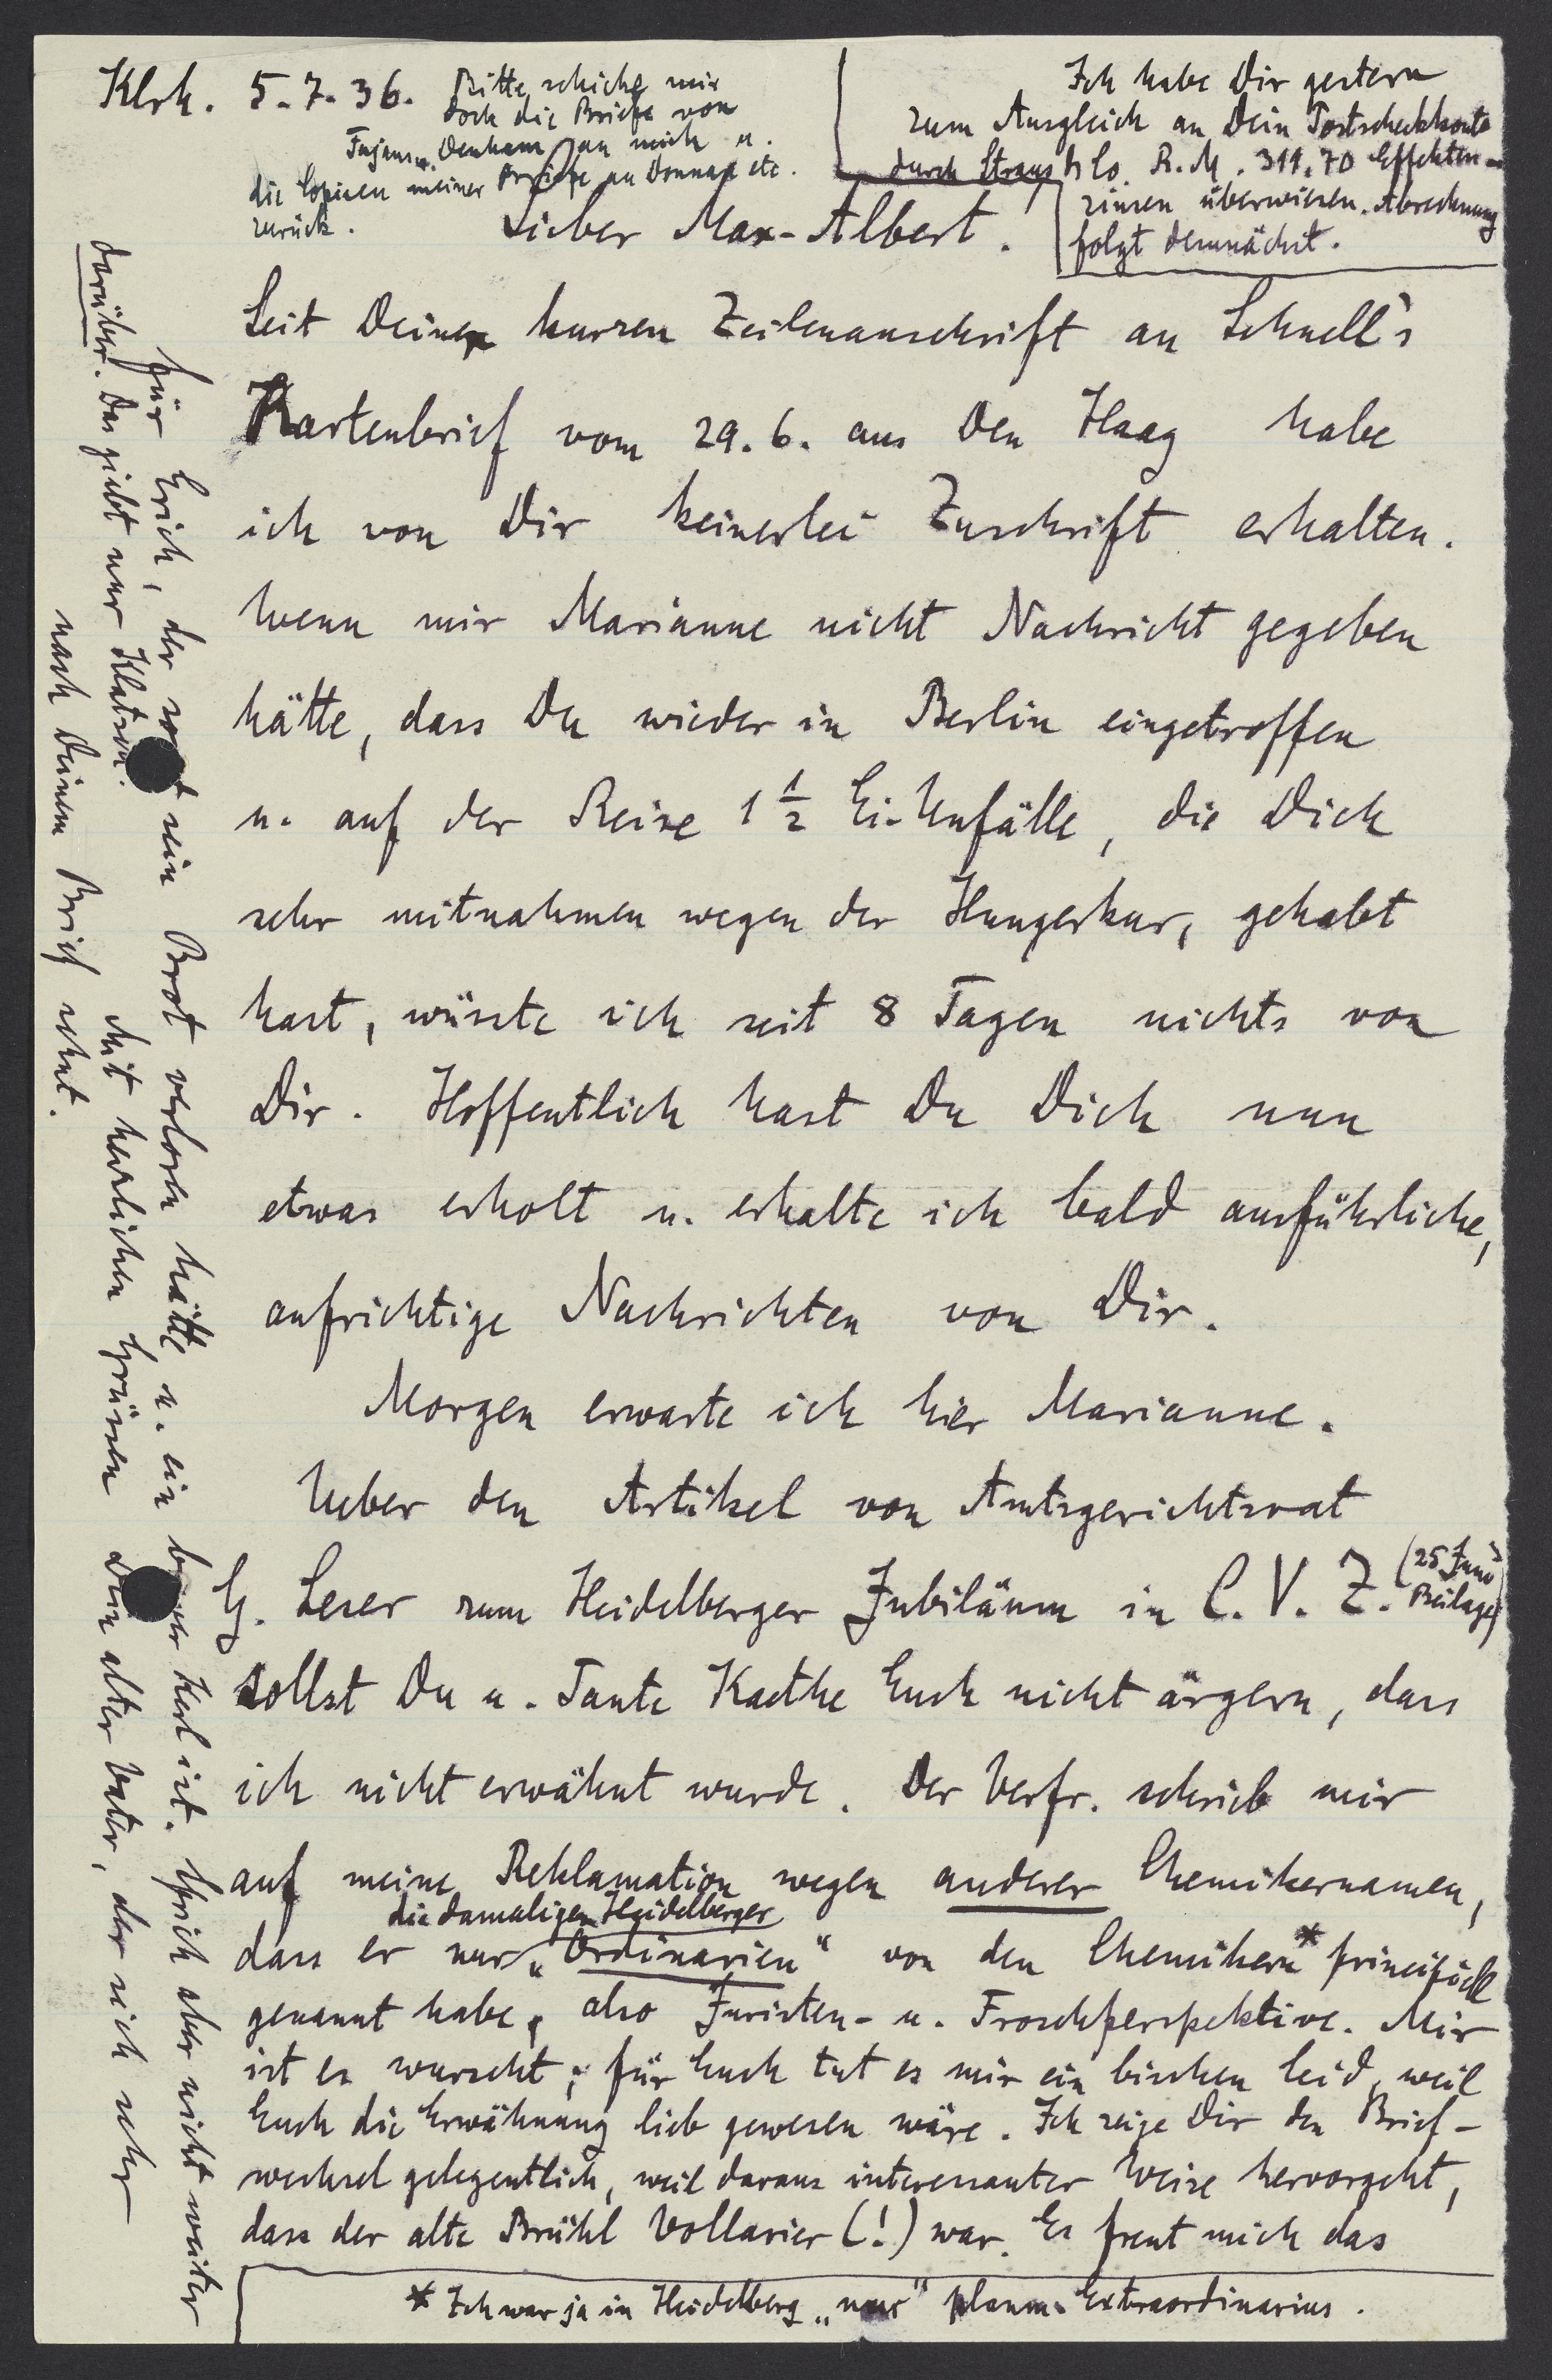 Klrh. 5.7.36.
Bitte schicke mir
doch die Briefe von
Fajans u. Denham an mich u.
die Copieen meiner Briefe an Donnan etc.
zurück.
Ich habe Dir gestern
zum Ausgleich an Dein Postscheckkonto
durch Straus & Co. R.M. 311.70 Effekten-
zinsen überwiesen. Abrechnung
folgt demnächst.
Lieber Max-Albert.
Seit Deiner kurzen Zeilenanschrift an Schnell's
Kartenbrief vom 29.6. aus Den Haag habe
ich von Dir keinerlei Zuschrift erhalten.
Wenn mir Marianne nicht Nachricht gegeben
hätte, dass Du wieder in Berlin eingetroffen
u. auf der Reise 1 1/2 Ei-Unfälle, die Dich
sehr mitnahmen wegen der Hungerkur, gehabt
hast, wüsste ich seit 8 Tagen nichts von
Dir. Hoffentlich hast Du Dich nun
etwas erholt u. erhalte ich bald ausführliche,
aufrichtige Nachrichten von Dir.
Morgen erwarte ich hier Marianne.
Ueber den Artikel von Amtsgerichtsrat
G. Leser zum Heidelberger Jubiläum in C.V.Z. (25 Juni Beilage)
sollst Du u. Tante Kaethe Euch nicht ärgern, dass
ich nicht erwähnt wurde. Der Verfr. schrieb mir
auf meine Reklamation wegen anderer Chemikernamen,
dass er nur die damaligen Heidelberger „Ordinarien" von den Chemikern* principiell
genannt habe, also Juristen- u. Froschperspektive. Mir
ist es wurscht; für Euch tut es mir ein bischen leid, weil
Euch die Erwähnung lieb gewesen wäre. Ich zeige Dir den Brief-
wechsel gelegentlich, weil daraus interessanter Weise hervorgeht,
dass der alte Brühl Vollarier (!) war. Es freut mich das
* Ich war ja in Heidelberg „nur" planm. Extraordinarius.
für Erich, der sonst sein Brot verloren hätte u. ein braver Kerl ist. Sprich aber nicht weiter
darüber. Das giebt nur Klatsch.
Mit herzlichen Grüssen Dein alter Vater, der sich sehr
nach Deinem Brief sehnt.